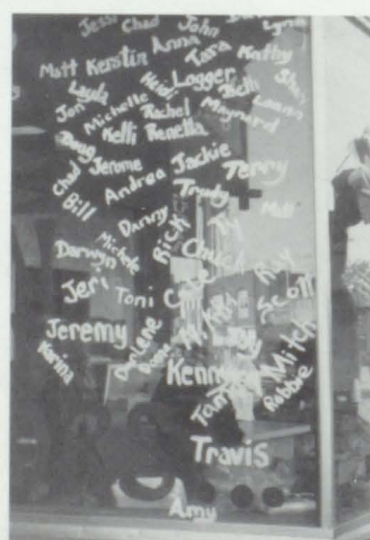 Jessi Chad John Lynn
Matt Kerstin Anna Tara Kathy
Layla Heidi Logger Beth Shari
Jon Michelle Rachel Maynard Loann
Doug Kelli Renetta
Chad Jerome Andrea Jackie Terry
Bill Trudy Matt
Danny Rick Ty
Darwyn Michele Chuck Ray
Jeri Toni Scott
Jeremy Darlene Mitch
Karina Duane Kenny
Tam Robbie
Travis
Amy